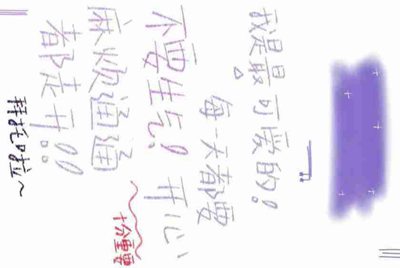 我是最可愛的!
每一天都要
开心、
不要生气!
麻烦通通
都走开!!
拜托啦~
十分重要